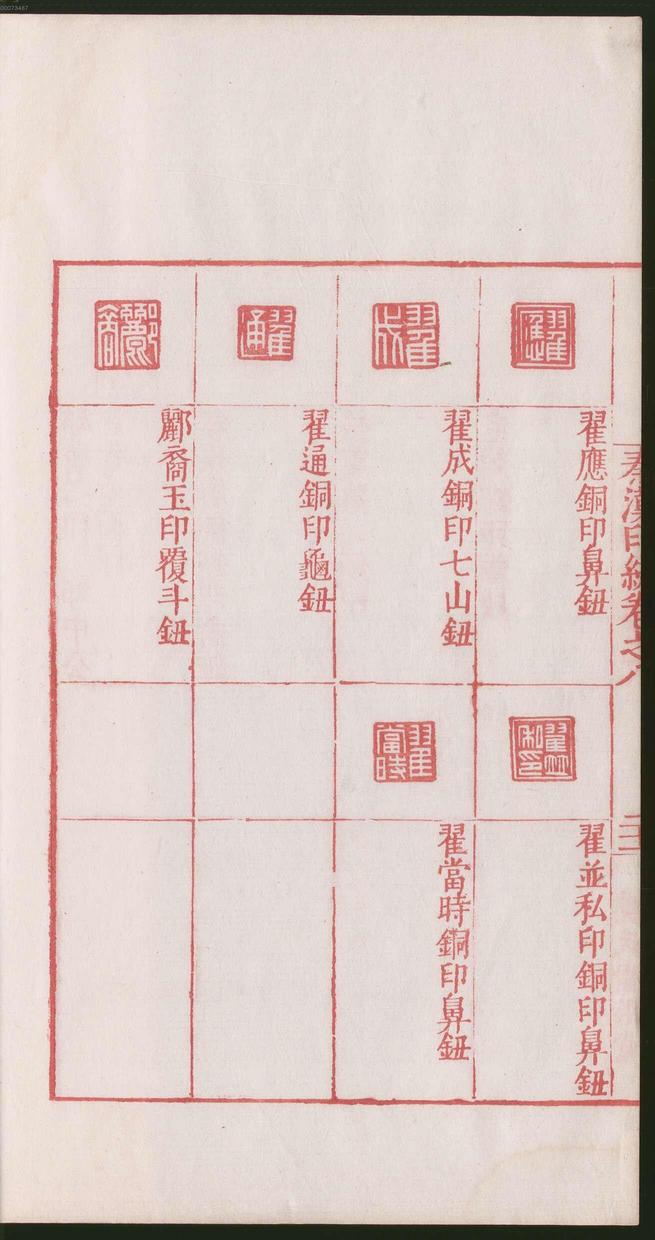 00073467
秦漢印統卷之八
翟應
翟應銅印鼻鈕
翟並私印
翟並私印銅印鼻鈕
翟成
翟成銅印七山鈕
翟當時
翟當時銅印鼻鈕
翟通
翟通銅印龜鈕
酈裔
酈裔玉印覆斗鈕